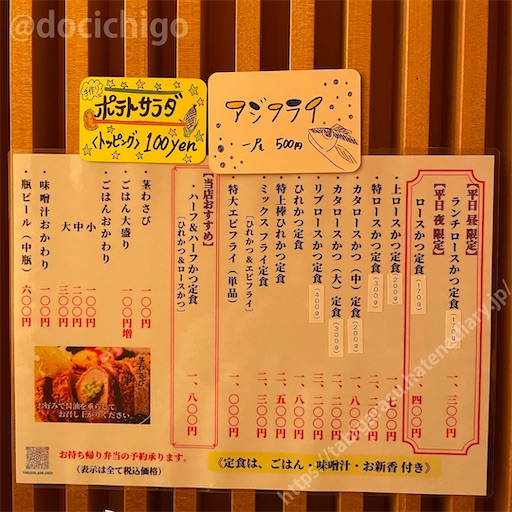 @docichigo
手作り
ポテトサラダ
〈トッピング〉100yen
アジフライ
一尾 500円
【平日 昼 限定】
ランチロースかつ定食(170g) 一、三〇〇円
【平日 夜 限定】
ロースかつ定食(170g) 一、四〇〇円
・上ロースかつ定食(200g)
・特ロースかつ定食(300g)
・カタロースかつ(中)定食(200g)
・カタロースかつ(大)定食(300g)
・リブロースかつ定食(400g)
・ひれかつ定食
・特上棒ひれかつ定食
・ミックスフライ定食
(ひれかつ&エビフライ)
・特大エビフライ(単品) 一、〇〇〇円
【当店おすすめ】
・ハーフ&ハーフかつ定食
(ひれかつ&ロースかつ) 一、八〇〇円
・茎わさび 一〇〇円
・ごはん大盛り 一〇〇円増
・ごはんおかわり
小 一〇〇円
中 二〇〇円
大 三〇〇円
・味噌汁おかわり 一〇〇円
・瓶ビール(中瓶) 六〇〇円
お好みで醤油を垂らして
お召し上がりください
お持ち帰り弁当の予約承ります。
(表示は全て税込価格)
《定食は、ごはん・味噌汁・お新香 付き》